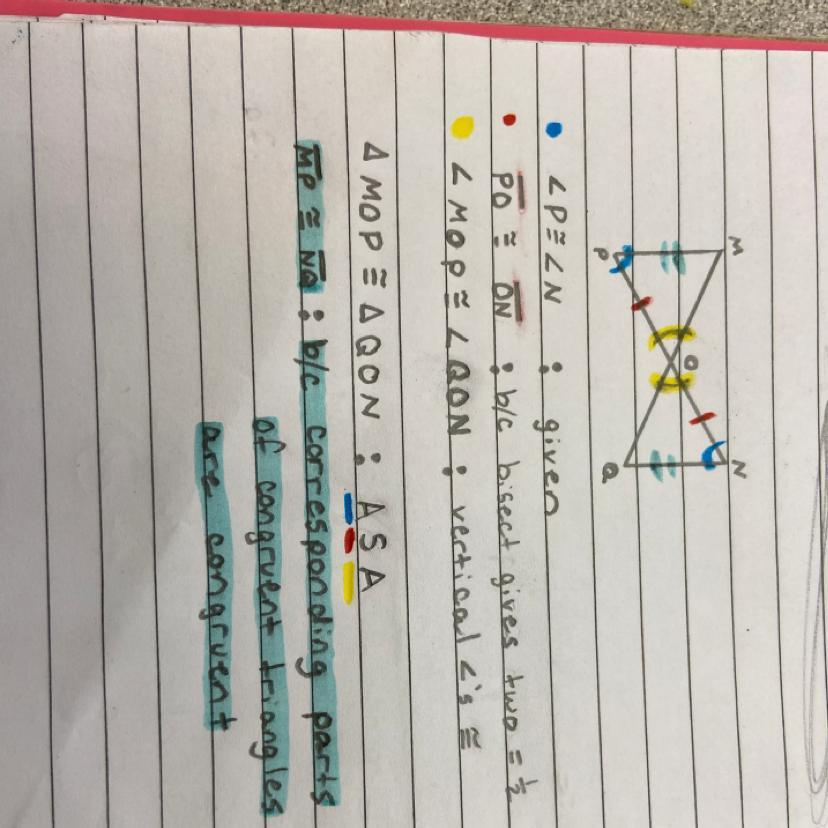 M N
O
P Q
∠P ≅ ∠N : given
PO ≅ ON : b/c bisect gives two = 1/2
∠MOP ≅ ∠QON : vertical ∠'s ≅
Δ MOP ≅ Δ QON : ASA
MP ≅ NQ : b/c corresponding parts
of congruent triangles
are congruent